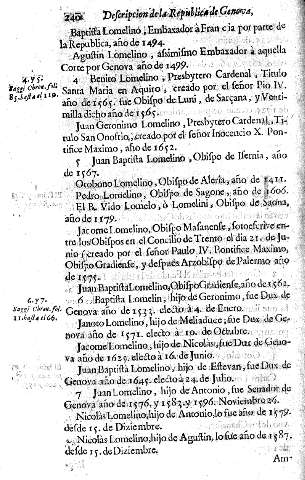 240 Descripcion de la Republica de Genova,
Baptista Lomelino, Embaxador à Francia por parte de
la Republica, año de 1494.
Agustin Lomelino, assimismo Embaxador à aquella
Corte por Genova año de 1499.
4. y 5.
Baggi Chron. fol.
85. hasta el 120.
4 Benito Lomelino, Presbytero Cardenal, Titulo
Santa Maria en Aquiro, creado por el señor Pio IV.
año de 1565. fue Obispo de Luni, de Sarçana, y Venti-
milla dicho año de 1565.
Juan Geronimo Lomelino, Presbytero Cardenal, Ti-
tulo San Onofrio, creado por el señor Inocencio X. Pon-
tifice Maximo, año de 1652.
5 Juan Baptista Lomelino, Obispo de Isernia, año
de 1567.
Otobono Lomelino, Obispo de Aleria, año de 1411.
Pedro Lomelino, Obispo de Sagone, año de 1606.
El B. Vido Lomelo, ò Lomelini, Obispo de Saona,
año de 1179.
Jacome Lomelino, Obispo Masanense, sotoescrive en-
tre los Obispos en el Concilio de Trento el dia 21. de Ju-
nio; creado por el señor Paulo IV. Pontifice Maximo,
Obispo Gradiense, y despues Arçobispo de Palermo año
de 1575.
Juan Baptista Lomelino, Obispo Gradiense, año de 1562.
6. y 7.
Baggi Chron. fol.
21. hasta 166.
6 Baptista Lomelin, hijo de Geronimo, fue Dux de
Genova año de 1533. electo à 4. de Enero.
Janoto Lomelino, hijo de Meliaduce; fue Dux de Ge-
nova año de 1571. electo à 10. de Octubre.
Jacome Lomelino, hijo de Nicolàs, fue Dux de Geno-
va año de 1625. electo à 16. de Junio.
Juan Baptista Lomelino, hijo de Estevan, fue Dux de
Genova año de 1645. electo à 24. de Julio.
7 Juan Lomelino, hijo de Antonio, fue Senador de
Genova año de 1576. y 1583. y 1596. Noviembre 26.
Nicolàs Lomelino, hijo de Antonio, lo fue año de 1579.
desde 15. de Diziembre.
Nicolàs Lomelino, hijo de Agustin, lo fue año de 1587.
desde 15. de Diziembre.
Am-